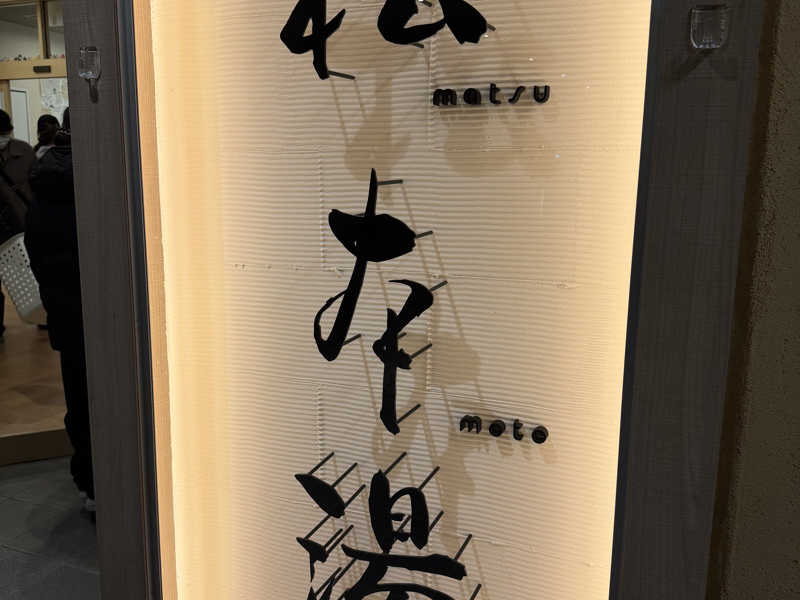 松
matsu
本
moto
湯